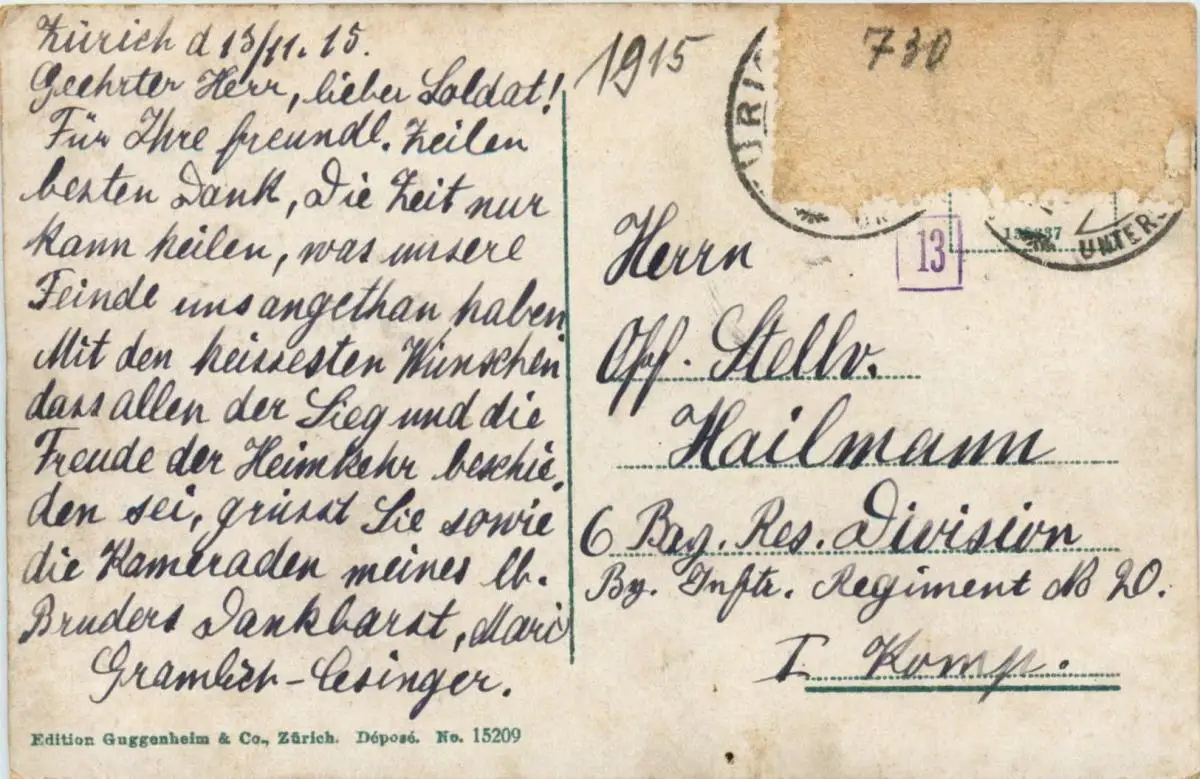 Zürich d 13/11. 15.
Geehrter Herr, lieber Soldat!
Für Ihre freundl. Zeilen
besten Dank, Die Zeit nur
kann heilen, was unsere
Feinde uns angethan haben
Mit den heissesten Wünschen
dass allen der Sieg und die
Freude der Heimkehr beschie
den sei, grüsst Sie sowie
die Kameraden meines lb.
Bruders Dankbarst, Marie
Gramlich-Cesinger.
Edition Guggenheim & Co., Zürich. Déposé. No. 15209
1915
730
13
UNTER
Herrn
Off. Stellv.
Hailmann
6 Bay. Res. Division
By. Inftr. Regiment No 20.
I. Komp.